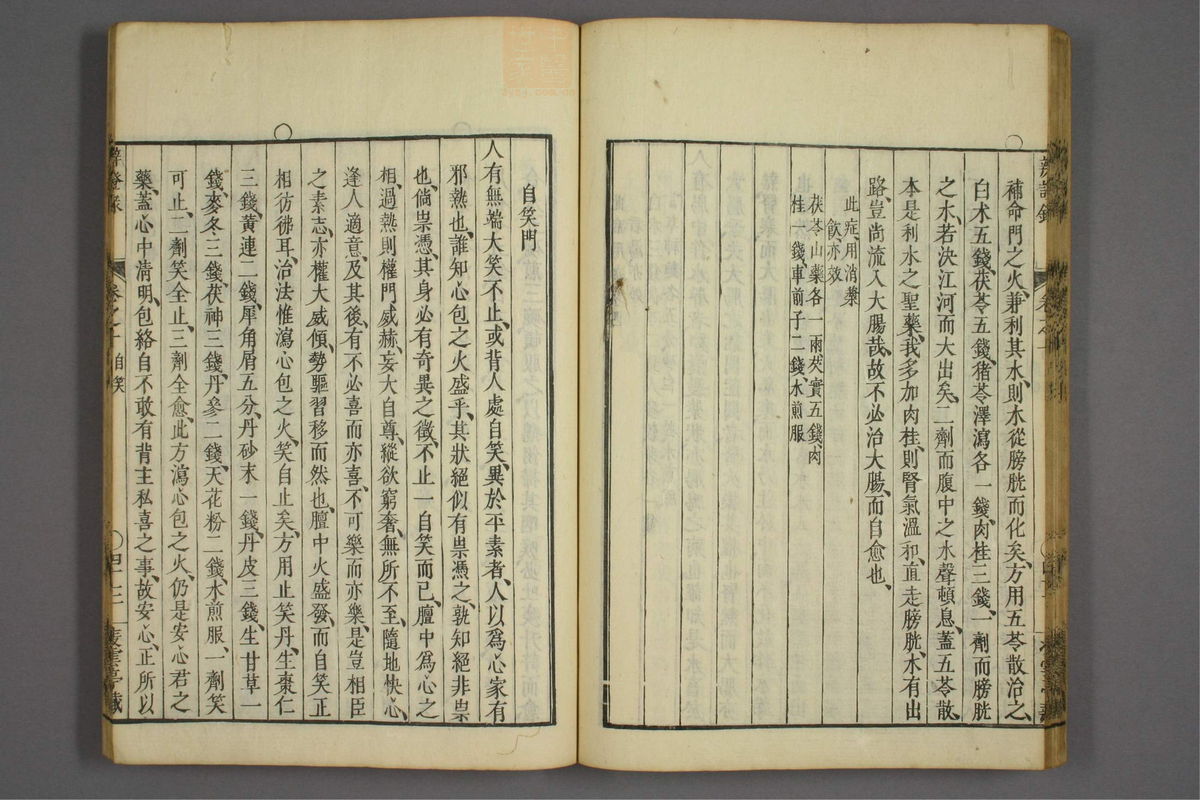 補命門之火兼利其水則水從膀胱而化矣方用五苓散治之
白术五錢茯苓五錢猪苓澤瀉各一錢肉桂三錢一劑而膀胱
之水若決江河而大出矣二劑而腹中之水聲頓息蓋五苓散
本是利水之聖藥我多加肉桂則腎氣溫和直走膀胱水有出
路豈尚流入大腸哉故不必治大腸而自愈也
此症用消漿
飲亦效
茯苓山藥各一兩芡實五錢肉
桂一錢車前子二錢水煎服
自笑門
人有無端大笑不止或背人處自笑異於平素者人以爲心家有
邪熱也誰知心包之火盛乎其狀絕似有祟憑之孰知絕非祟
也倘祟憑其身必有奇異之徵不止一自笑而已膻中爲心之
相過熱則權門威赫妄大自尊縱欲窮奢無所不至隨地快心
逢人適意及其後有不必喜而亦喜不可樂而亦樂是豈相臣
之素志亦權大威傾勢驅習移而然也膻中火盛發而自笑正
相彷彿耳治法惟瀉心包之火笑自止矣方用止笑丹生棗仁
三錢黃連二錢犀角屑五分丹砂末一錢丹皮三錢生甘草一
錢麥冬三錢茯神三錢丹參二錢天花粉二錢水煎服一劑笑
可止二劑笑全止三劑全愈此方瀉心包之火仍是安心君之
藥蓋心中清明包絡自不敢有背主私喜之事故安心正所以
辨證录 卷之十 自笑